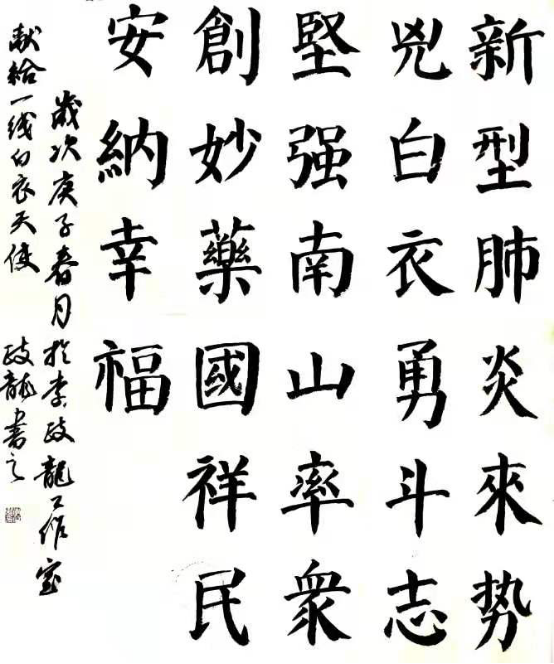 新型肺炎來势
兇白衣勇斗志
堅强南山率衆
創妙藥國祥民
安納幸福
歲次庚子春月於李政龍工作室
献给一线白衣天使 政龍書之